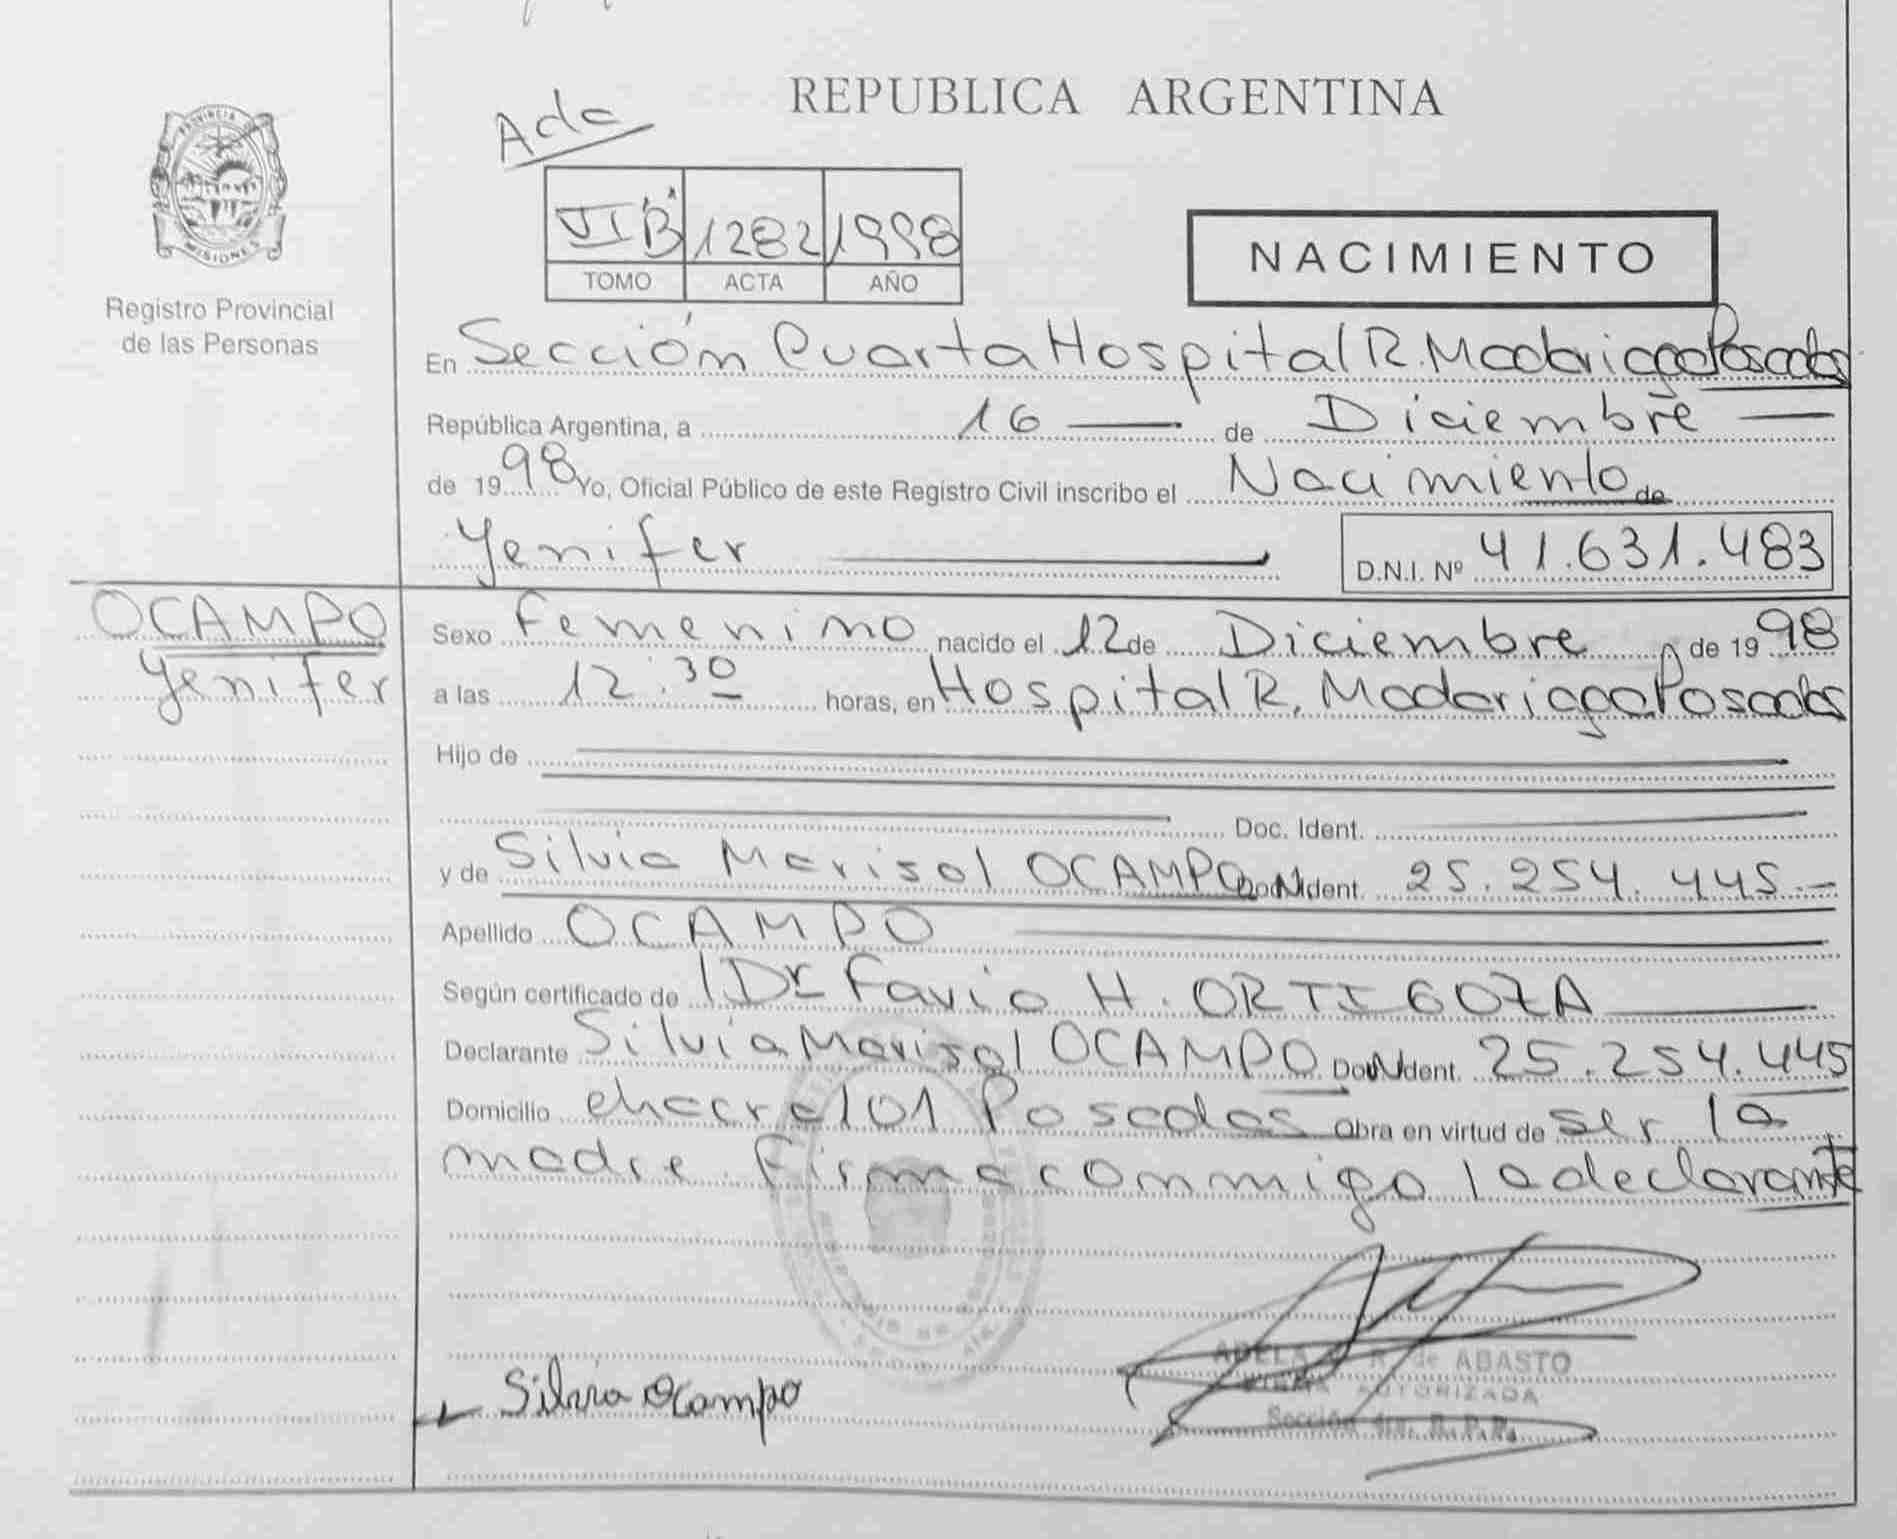 REPUBLICA ARGENTINA
Ada
PROVINCIA
MISIONES
Registro Provincial
de las Personas
VI "B" 1282 1998
TOMO ACTA AÑO
NACIMIENTO
En Sección Cuarta Hospital R. Madariaga Posadas
República Argentina, a 16 de Diciembre
de 1998 Yo, Oficial Público de este Registro Civil inscribo el Nacimiento de
Yenifer D.N.I. Nº 41.631.483
OCAMPO
Yenifer
Sexo Femenino nacido el 12 de Diciembre de 1998
a las 12:30 horas, en Hospital R. Madariaga Posadas
Hijo de
Doc. Ident.
y de Silvia Marisol OCAMPO Doc. Ident. 25.254.445.-
Apellido OCAMPO
Según certificado de Dr Favio H. ORTIGOZA
Declarante Silvia Marisol OCAMPO Doc. Ident. 25.254.445
Domicilio chacra 101 Posadas Obra en virtud de ser la
madre. Firma conmigo la declarante
Silvia Ocampo
ADELA R. de ABASTO
FIRMA AUTORIZADA
Sección 4ta. R.P.P.